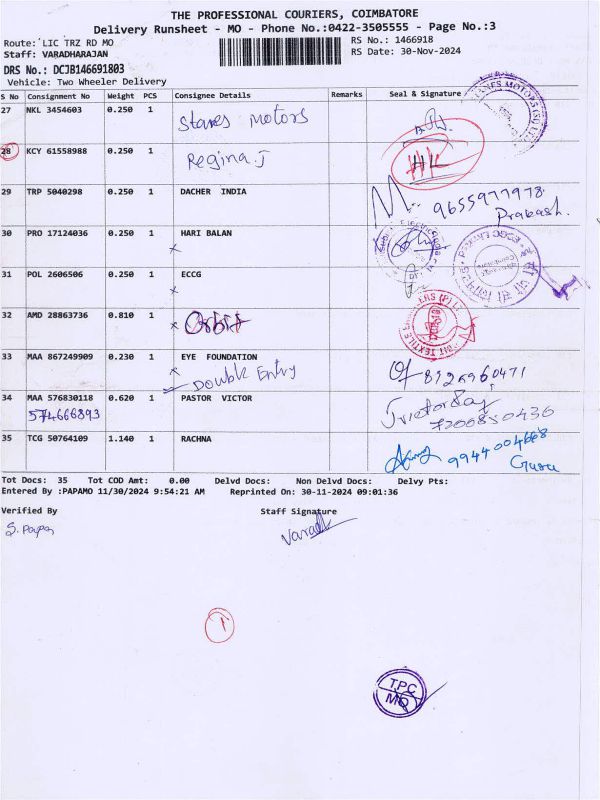 THE PROFESSIONAL COURIERS, COIMBATORE
Delivery Runsheet - MO - Phone No.:0422-3505555 - Page No.:3
Route: LIC TRZ RD MO RS No.: 1466918
Staff: VARADHARAJAN RS Date: 30-Nov-2024
DRS No.: DCJB146691803
Vehicle: Two Wheeler Delivery
S No Consignment No Weight PCS Consignee Details Remarks Seal & Signature
27 NKL 3454603 0.250 1 Stanes Motors
28 KCY 61558988 0.250 1 Regina.J
29 TRP 5040298 0.250 1 DACHER INDIA 9655977978
Prakash.
30 PRO 17124036 0.250 1 HARI BALAN
31 POL 2606506 0.250 1 ECCG
32 AMD 28863736 0.810 1 Orbit
33 MAA 867249909 0.230 1 EYE FOUNDATION 8925960471
Double Entry
34 MAA 576830118 0.620 1 PASTOR VICTOR
574666893 7200850436
35 TCG 50764109 1.140 1 RACHNA 9944004668
Guru
Tot Docs: 35 Tot COD Amt: 0.00 Delvd Docs: Non Delvd Docs: Delvy Pts:
Entered By :PAPAMO 11/30/2024 9:54:21 AM Reprinted On: 30-11-2024 09:01:36
Verified By Staff Signature
S. Papa
1
T.P.C
MO